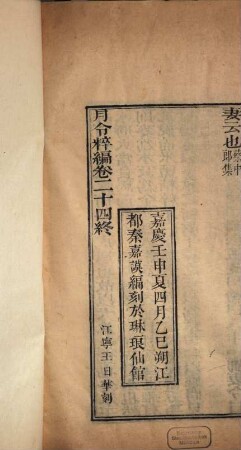 妻云也
嘉慶壬申夏四月乙巳朔江
都秦嘉謨編刻於琳琅仙館
月令粹編卷二十四終
江寧王日華刻